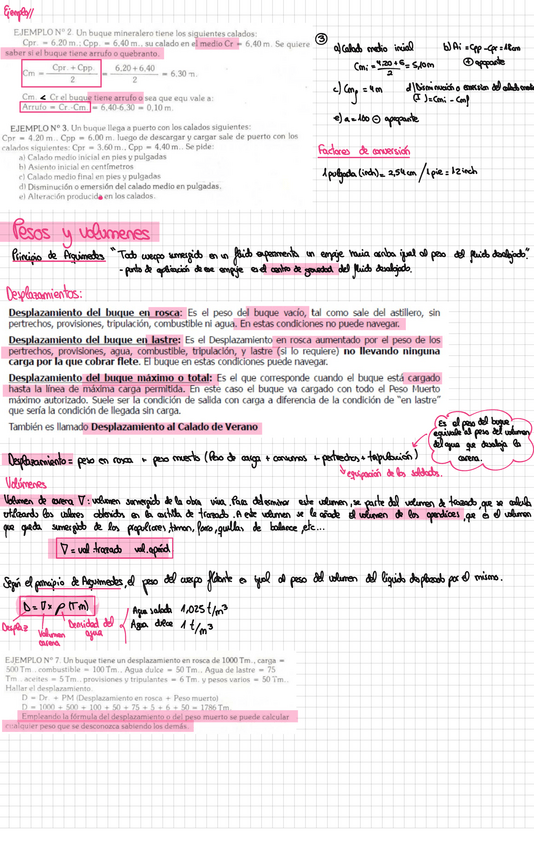 Ejemplo//
EJEMPLO Nº 2. Un buque mineralero tiene los siguientes calados:
Cpr. = 6,20 m.; Cpp. = 6,40 m., su calado en el medio Cr = 6,40 m. Se quiere
saber si el buque tiene arrufo o quebranto.
Cm = (Cpr. + Cpp.) / 2 = (6,20 + 6,40) / 2 = 6,30 m.
Cm. < Cr el buque tiene arrufo o sea que equ vale a:
Arrufo = Cr -Cm. = 6,40-6,30 = 0,10 m.
EJEMPLO Nº 3. Un buque llega a puerto con los calados siguientes:
Cpr = 4,20 m.. Cpp = 6,00 m. luego de descargar y cargar sale de puerto con los
calados siguientes: Cpr = 3,60 m., Cpp = 4,40 m.. Se pide:
a) Calado medio inicial en pies y pulgadas
b) Asiento inicial en centímetros
c) Calado medio final en pies y pulgadas
d) Disminución o emersión del calado medio en pulgadas.
e) Alteración producida en los calados.
③
a) Calado medio inicial
Cmi = (4,20+6) / 2 = 5,10m
b) Ai = Cpp - Cpr = 1,8cm
⊕ apopante
c) Cmf = 4m
d) Disminución o emersión del calado medio
(I) = Cmi - Cmf
e) a = 100 ⊖ apopante
Factores de conversión
1 pulgada (inch) = 2,54 cm / 1 pie = 12 inch
Pesos y volumenes
Principio de Arquimedes "Todo cuerpo sumergido en un fluido experimenta un empuje hacia arriba igual al peso del fluido desalojado."
- punto de aplicación de ese empuje es el centro de gravedad del fluido desalojado.
Desplazamientos:
Desplazamiento del buque en rosca: Es el peso del buque vacío, tal como sale del astillero, sin
pertrechos, provisiones, tripulación, combustible ni agua. En estas condiciones no puede navegar.
Desplazamiento del buque en lastre: Es el Desplazamiento en rosca aumentado por el peso de los
pertrechos, provisiones, agua, combustible, tripulación, y lastre (si lo requiere) no llevando ninguna
carga por la que cobrar flete. El buque en estas condiciones puede navegar.
Desplazamiento del buque máximo o total: Es el que corresponde cuando el buque está cargado
hasta la línea de máxima carga permitida. En este caso el buque va cargado con todo el Peso Muerto
máximo autorizado. Suele ser la condición de salida con carga a diferencia de la condición de "en lastre"
que sería la condición de llegada sin carga.
También es llamado Desplazamiento al Calado de Verano
Es el peso del buque
equivale al peso del volumen
del agua que desaloja la
carena.
Desplazamiento = peso en rosca + peso muerto (Peso de carga + consumos + pertrechos + tripulación)
↳ equipación de los soldados.
Volúmenes
Volumen de carena ∇: volumen sumergido de la obra viva. Para determinar este volumen, se parte del volumen de trazado, que se calcula
utilizando los valores obtenidos en la cartilla de trazado. A este volumen se le añade el volumen de los apendices, que es el volumen
que queda sumergido de los propulsores, timon, quillas de balance, etc...
∇ = vol. trazado vol. apénd
Según el principio de Arquimedes, el peso del cuerpo flotante es igual al peso del volumen del líquido desplazado por el mismo.
D = ∇ x ρ (Tm)
Desplaz
Volumen carena
Densidad del agua
Agua salada 1,025 t/m³
Agua dulce 1 t/m³
EJEMPLO Nº 7. Un buque tiene un desplazamiento en rosca de 1000 Tm., carga =
500 Tm.. combustible = 100 Tm.. Agua dulce = 50 Tm.. Agua de lastre = 75
Tm.. aceites = 5 Tm.. provisiones y tripulantes = 6 Tm. y pesos varios = 50 Tm..
Hallar el desplazamiento.
D = Dr. + PM (Desplazamiento en rosca + Peso muerto)
D = 1000 + 500 + 100 + 50 + 75 + 5 + 6 + 50 = 1786 Tm.
Empleando la fórmula del desplazamiento o del peso muerto se puede calcular
cualquier peso que se desconozca sabiendo los demás.